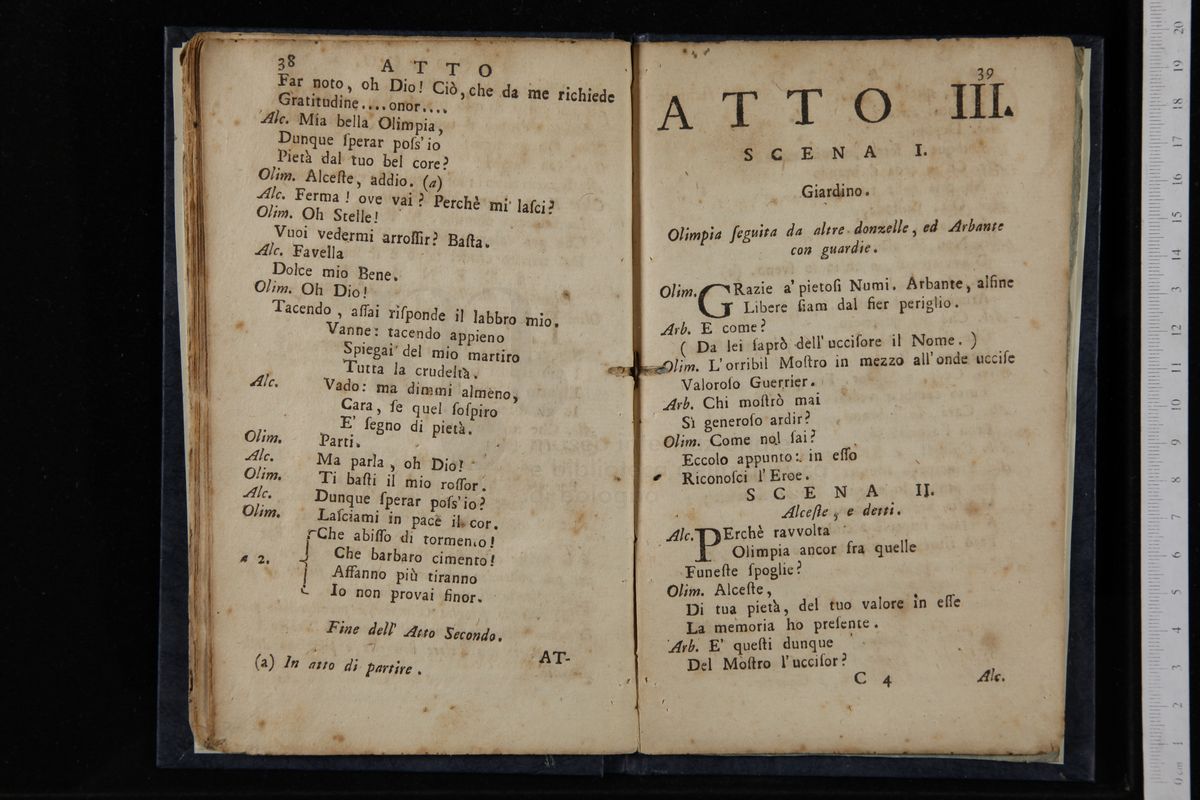 38
ATTO
Far noto, oh Dio! Ciò, che da me richiede
Gratitudine....onor....
Alc. Mia bella Olimpia,
Dunque ſperar poſs'io
Pietà dal tuo bel core?
Olim. Alceſte, addio. (a)
Alc. Ferma! ove vai? Perchè mi laſci?
Olim. Oh Stelle!
Vuoi vedermi arroſſir? Baſta.
Alc. Favella
Dolce mio Bene.
Olim. Oh Dio!
Tacendo, aſſai riſponde il labbro mio.
Vanne: tacendo appieno
Spiegai del mio martiro
Tutta la crudeltà.
Alc. Vado: ma dimmi almeno,
Cara, ſe quel ſoſpiro
E' ſegno di pietà.
Olim. Parti.
Alc. Ma parla, oh Dio!
Olim. Ti baſti il mio roſſor.
Alc. Dunque ſperar poſs'io?
Olim. Laſciami in pace il cor.
Che abiſſo di tormento!
a 2. Che barbaro cimento!
Aſſanno più tiranno
Io non provai finor.
Fine dell' Atto Secondo.
(a) In atto di partire.
AT-
39
ATTO III.
SCENA I.
Giardino.
Olimpia ſeguita da altre donzelle, ed Arbante
con guardie.
Olim. GRazie a' pietoſi Numi. Arbante, alfine
Libere ſiam dal fier periglio.
Arb. E come?
( Da lei ſaprò dell'ucciſore il Nome. )
Olim. L'orribil Moſtro in mezzo all'onde ucciſe
Valoroſo Guerrier.
Arb. Chi moſtrò mai
Sì generoſo ardir?
Olim. Come nol ſai?
Eccolo appunto: in eſſo
Riconoſci l'Eroe.
SCENA II.
Alceſte, e detti.
Alc. PErchè ravvolta
Olimpia ancor fra quelle
Funeſte ſpoglie?
Olim. Alceſte,
Di tua pietà, del tuo valore in eſſe
La memoria ho preſente.
Arb. E' queſti dunque
Del Moſtro l'ucciſor?
C 4
Alc.